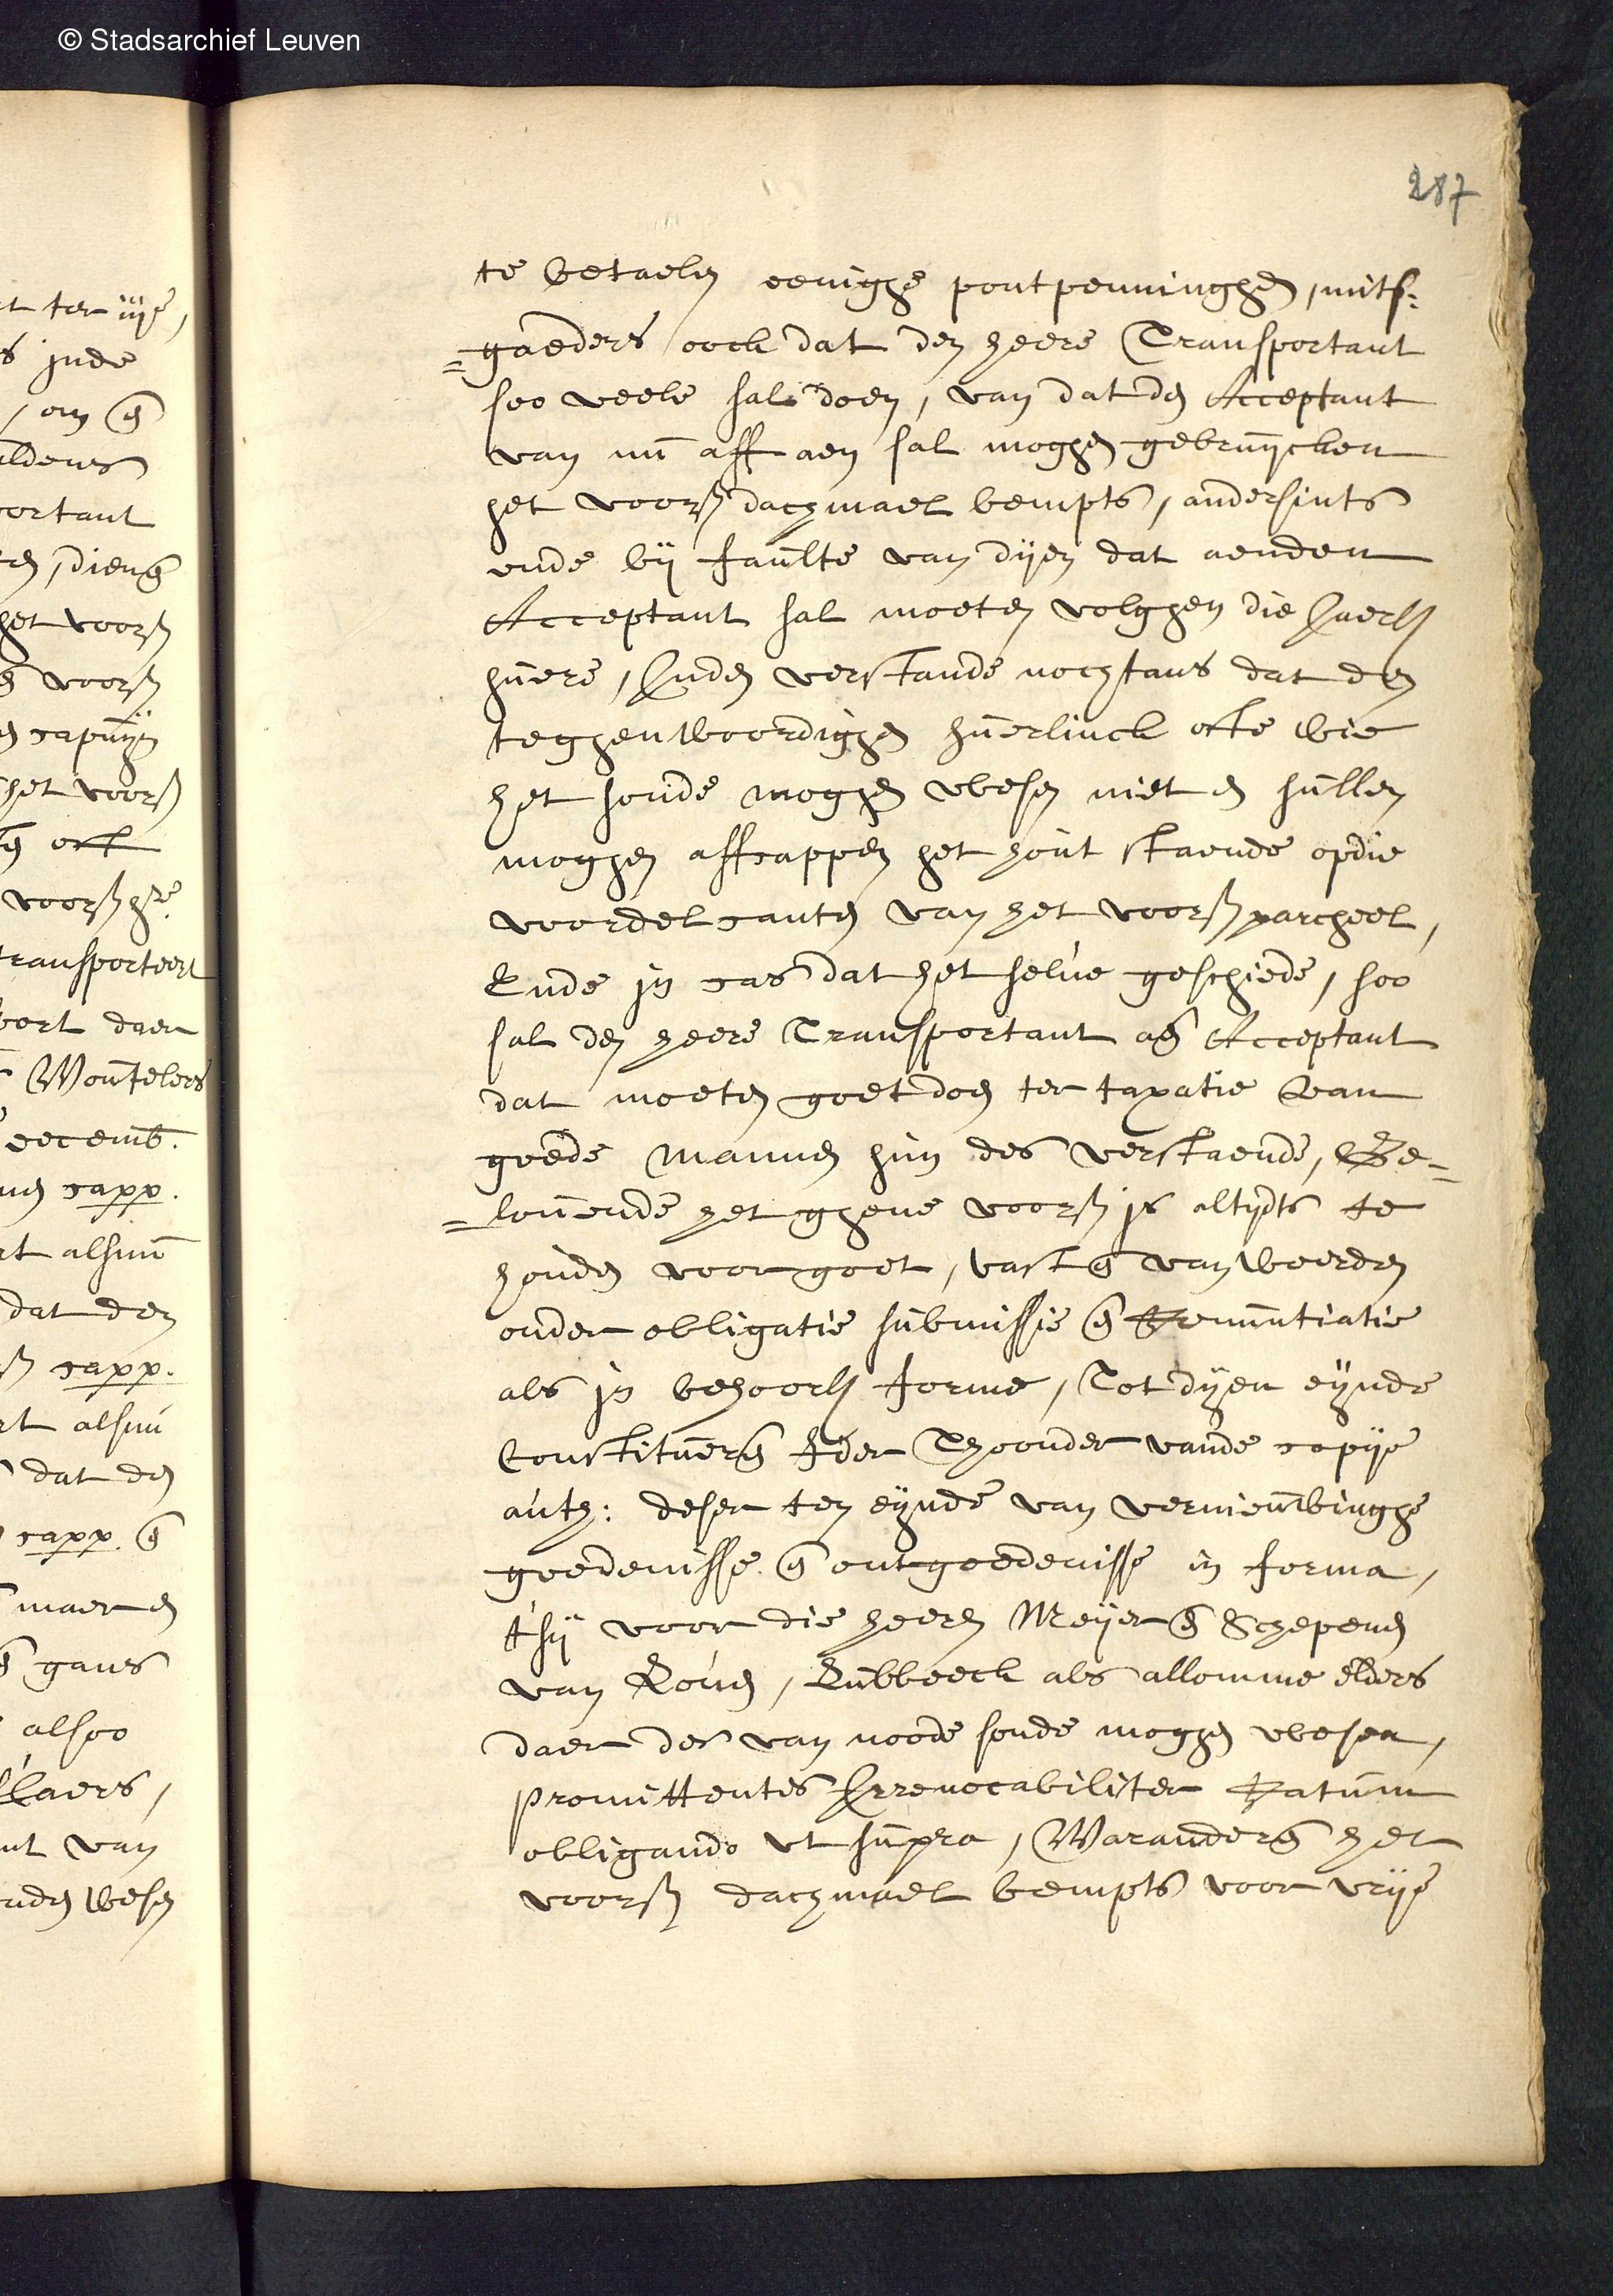 © Stadsarchief Leuven
287
te betaelen eenighe pontpenninghen, mits=
=gaeders oock dat den heere Transportant
soo veele sal doen, van dat den Acceptant
van nu aff aen sal moghen gebruijcken
het voors dachmael bempts, andersints
ende bij faulte van dijen dat aenden
Acceptant sal moeten volghen die Jaerl
huere, Inden verstande nochtans dat den
teghenwoordighen huerlinck ofte wie
het soude moghen wesen niet en sullen
moghen affcappen het hout staende opdie
voordelcanten van het voors parcheel,
Ende in cas dat het selve geschiede, soo
sal den heere Transportant aen Acceptant
dat moeten goet doen ter taxatie van
goede mannen hun des verstaende, Ge=
=louende het ghene voors is altijdts te
houden voor goet, vast en van weerden
onder obligatie submissie en Renuntiatie
als in behoorl forme, Tot dijen eijnde
Constituer Ider Thoonder vande copije
auth: deser ten eijnde van vernieuwinghe
goedenisse en ontgoedenisse in forma,
t'sij voor die heeren Meijer en Schepenen
van Roud, Lubbeeck als allomme elders
daer des van noode soude moghen wesen,
promittentes Irrevocabiliter Ratum
obligando ut supra, Warander het
voors dachmael bempts voor vrije
t ter iije,
s inde
, om en
ldens
ortant
, dien
het voors
voors
capuijn
het voors
oft
voors hre
transporteert
oort daer
Wouteleers
decemb.
capp.
rt alsnu
dat den
capp.
rt alsnu
dat den
capp. en
maer en
en gans
alsoo
laers,
nt van
nden wesen